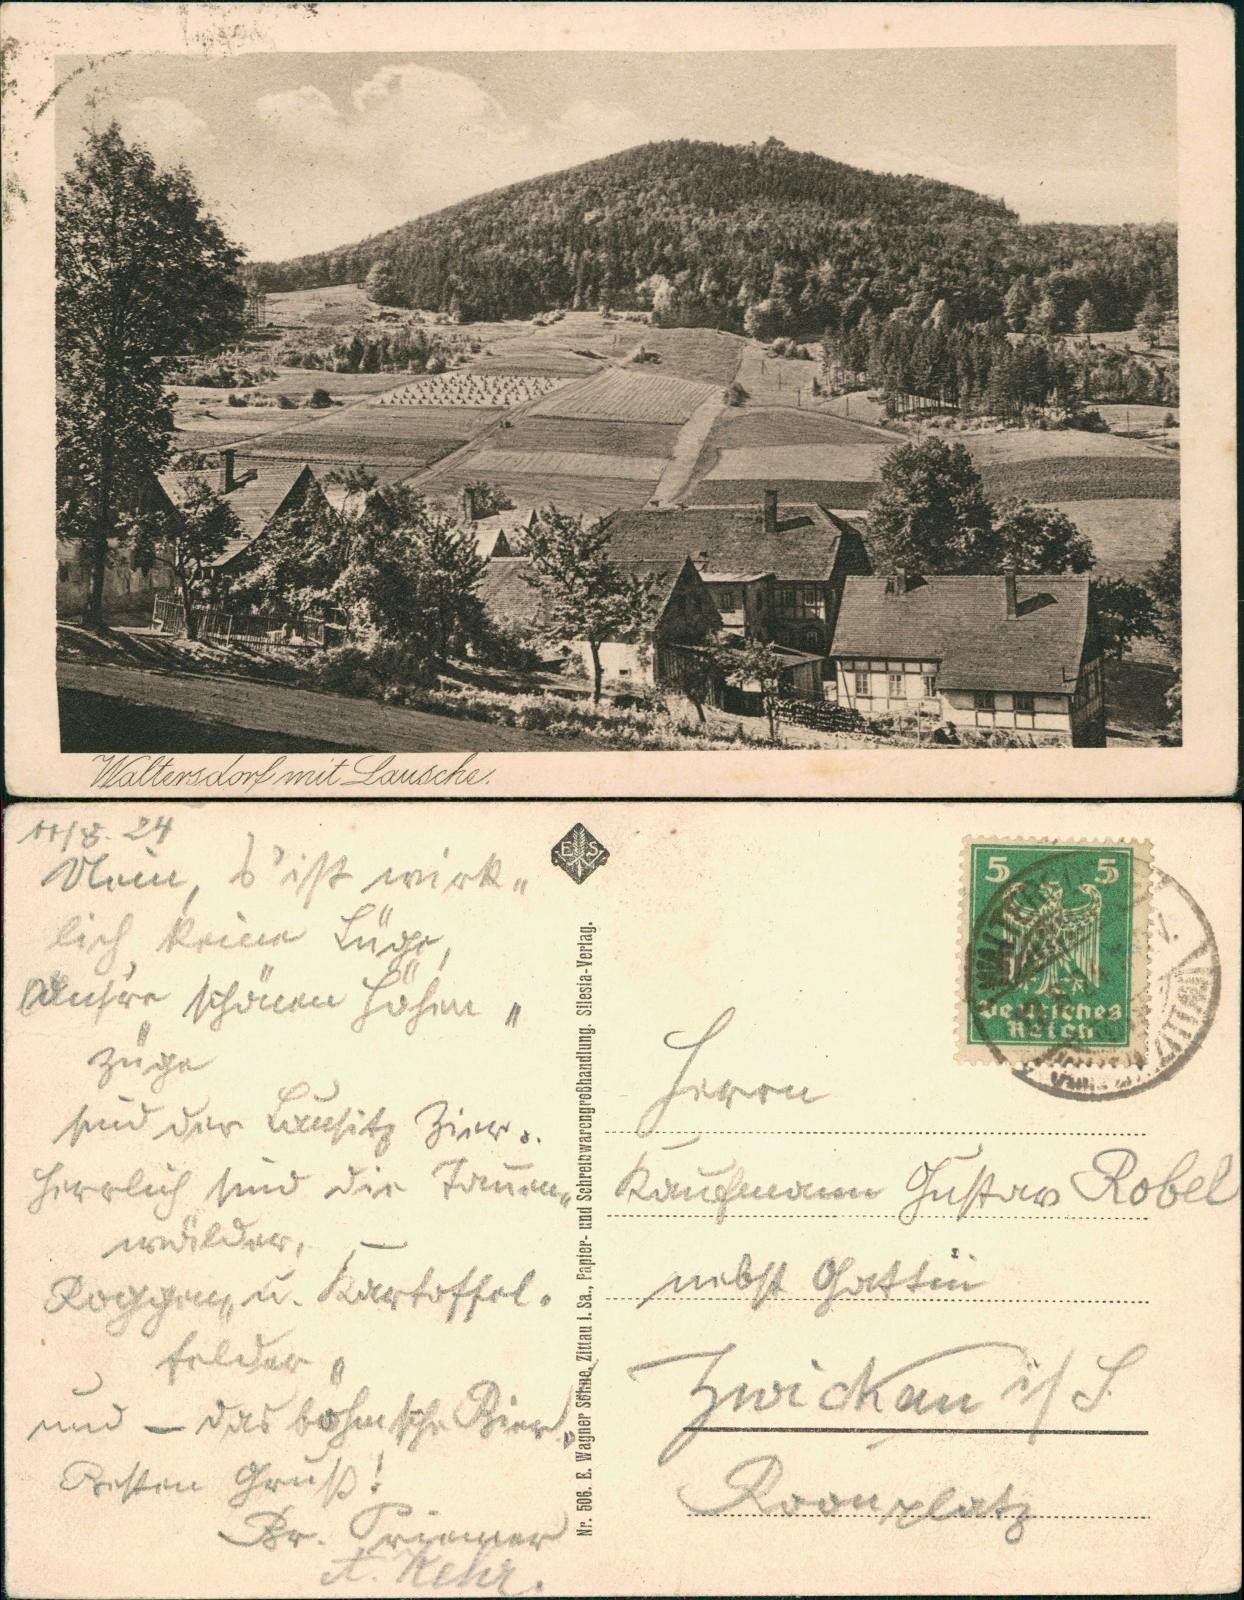 Waltersdorf mit Lausche.
11/8. 24
Nein, s'ist wirk„
lich keine Lüge,
Unsre schönen Höhen„
züge
sind der Lausitz Zier.
Herrlich sind die Tannen„
wälder,
Roggen„ u. Kartoffel„
felder„
und – das böhmsche Bier„
Besten Gruß!
Br. Priemer
A. Kehr.
E S
Nr. 506. E. Wagner Söhne, Zittau i. Sa., Papier- und Schreibwarengroßhandlung. Silesia-Verlag.
5 5
Deutsches
Reich
Herrn
Kaufmann Gustav Robel
nebst Gattin
Zwickau i/S.
Roonplatz